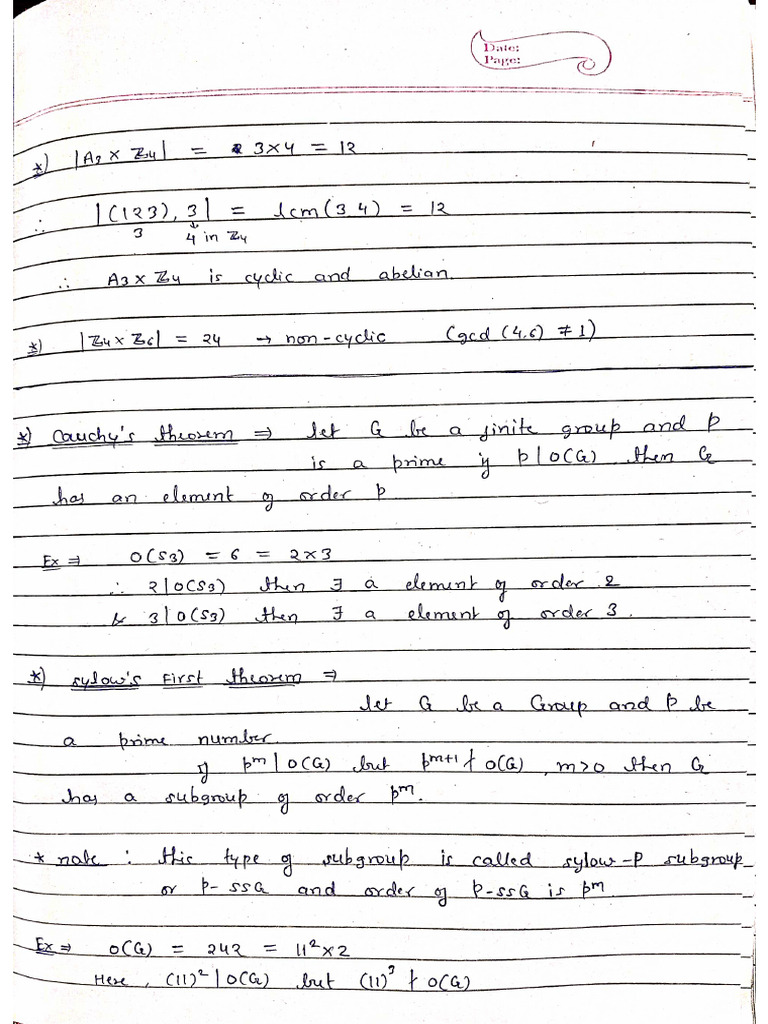 Date:
Page:
*) |A3 × Z4| = 3×4 = 12
∴ |(123), 3| = lcm(3 4) = 12
3 4 in Z4
∴ A3 × Z4 is cyclic and abelian.
*) |Z4 × Z6| = 24 → non-cyclic (gcd (4,6) ≠ 1)
*) Cauchy's theorem ⇒ let G be a finite group and p
is a prime if p | O(G) then G
has an element of order p
Ex ⇒ O(S3) = 6 = 2×3
∴ 2 | O(S3) then ∃ a element of order 2
& 3 | O(S3) then ∃ a element of order 3.
*) Sylow's First theorem ⇒
let G be a Group and p be
a prime number.
if p^m | O(G) but p^m+1 ∤ O(G), m>0 then G
has a subgroup of order p^m.
* note : this type of subgroup is called sylow-P subgroup
or p-ssG and order of p-ssG is p^m.
Ex ⇒ O(G) = 242 = 11²×2
Here, (11)² | O(G) but (11)³ ∤ O(G)